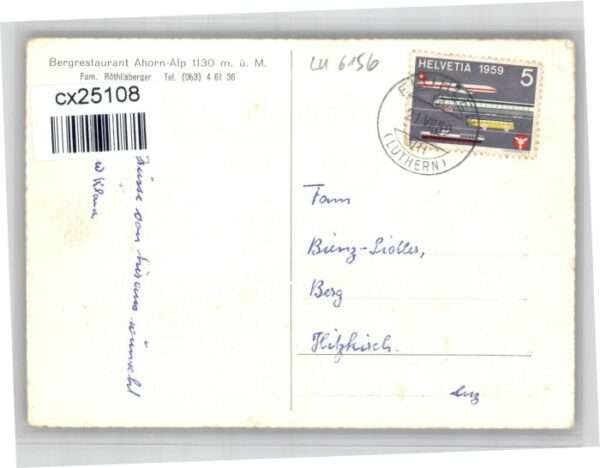 Bergrestaurant Ahorn-Alp 1130 m. ü. M.
Fam. Röthlisberger Tel. (063) 4 61 36
cx25108
LU 6156
HELVETIA 1959 5
(LUTHERN)
von hier aus wünscht
Fam
Bienz-Sidler,
Berg
Hitzkirch.
Luz